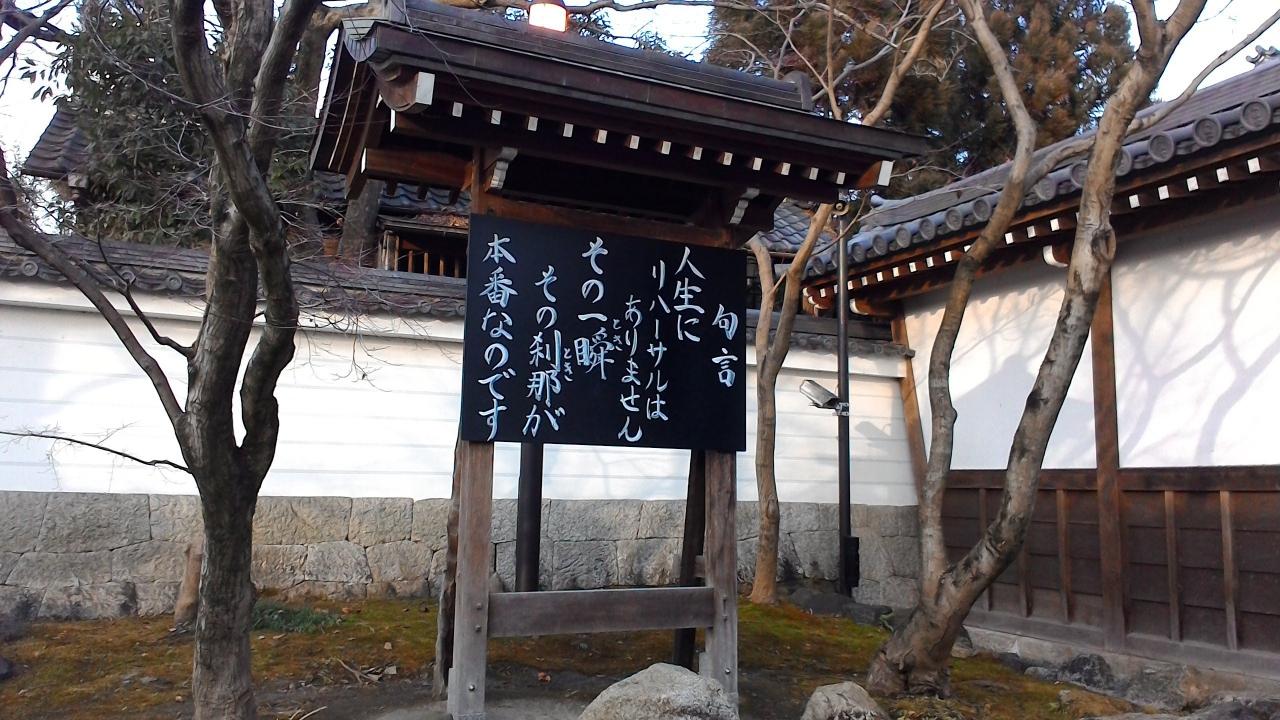 句言
人生に
リハーサルは
ありません
その一瞬
とき
その刹那が
とき
本番なのです